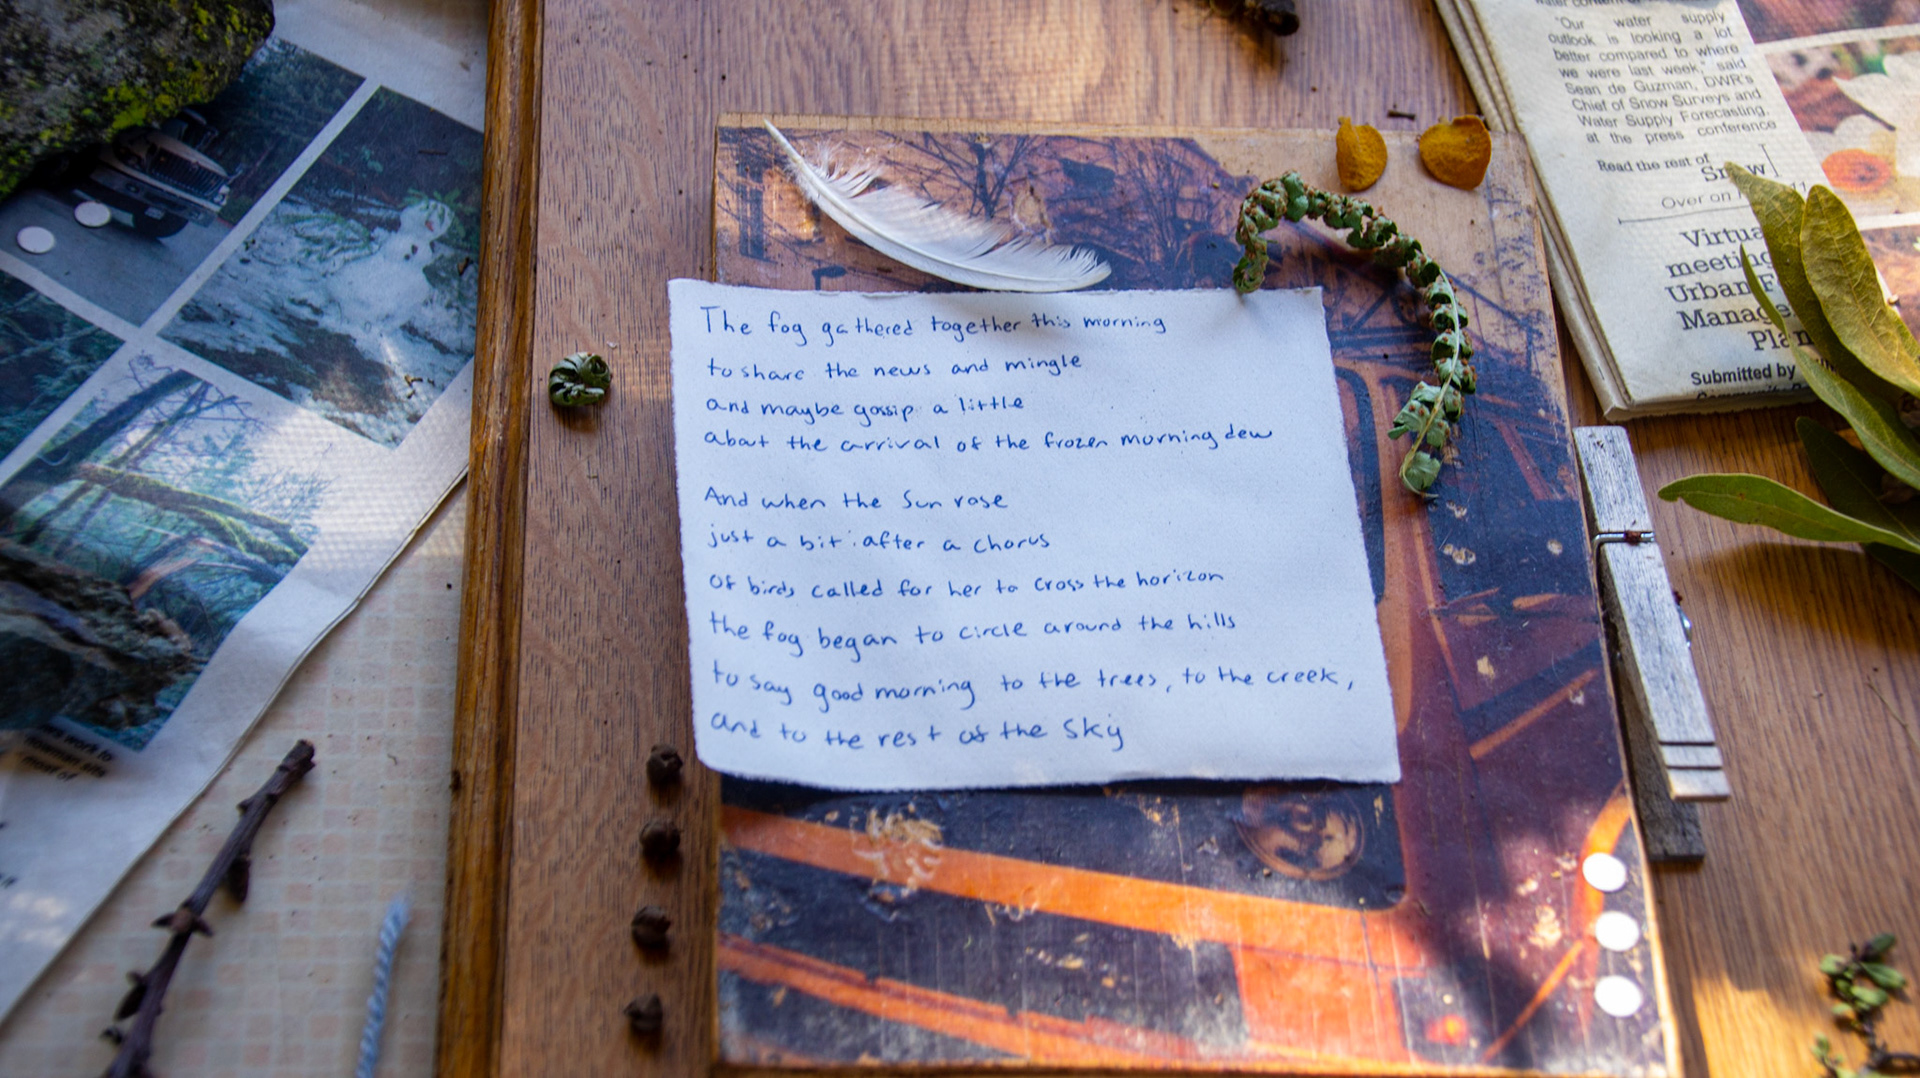 The fog gathered together this morning
to share the news and mingle
and maybe gossip a little
about the arrival of the frozen morning dew
And when the Sun rose
just a bit after a chorus
of birds called for her to cross the horizon
the fog began to circle around the hills
to say good morning to the trees, to the creek,
and to the rest of the sky
"Our water supply
outlook is looking a lot
better compared to where
we were last week," said
Sean de Guzman, DWR's
Chief of Snow Surveys and
Water Supply Forecasting,
at the press conference
Read the rest of
Snow
Over on
meeting
Urban
Submitted by
work to
most of